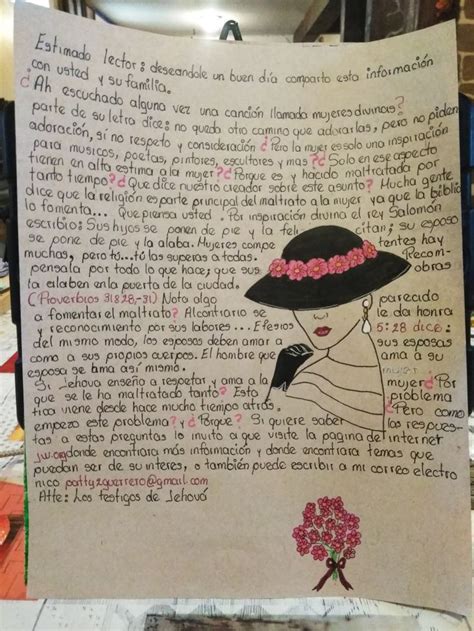 Estimado lector: deseandole un buen día comparto esta información
con usted y su familia.
¿Ah escuchado alguna vez una canción llamada mujeres divinas?
parte de su letra dice: no queda otro camino que adorarlas, pero no piden
adoración, sí no respeto y consideración ¿Pero la mujer es solo una inspiración
para musicos, poetas, pintores, escultores y mas?¿Solo en ese aspecto
tienen en alta estima a la mujer?¿Porque es y hacido maltratada por
tanto tiempo?¿Que dice nuestro creador sobre este asunto? Mucha gente
dice que la religión es parte principal del maltrato a la mujer ya que la biblia
lo fomenta... Que piensa usted. Por inspiración divina el rey Salomón
escribio: Sus hijos se ponen de pie y la feli citar; su esposo
se pone de pie y la alaba. Mujeres compe tentes hay
muchas, pero tú...tó las superas a todas. Recom-
pensala por todo lo que hace; que sus obras
la alaben en la puerta de la ciudad.
(Proverbios 31:28,-31) Nota algo parecido
a fomentar el maltrato? Alcontrario se le da honra
y reconocimiento por sus labores... Efesios 5:28 dice:
del mismo modo, los esposos deben amar a sus esposas
como a sus propios cuerpos. El hombre que ama a su
esposa se ama así mismo.
Si Jehova enseño a respetar y ama a la mujer¿Por
que se le ha maltratado tanto? Esto problema
tico viene desde hace mucho tiempo atrás. ¿Pero como
empezo este problema? y ¿Porque? Si quiere saber las respues-
tas a estas preguntas lo invito a que visite la pagina de internet
jw.org donde encontrara más información y donde encontrara temas que
puedan ser de su interes, o también puede escribir a mi correo electro
nico patty2guerrero@gmail.com
Atte: Los testigos de Jehová